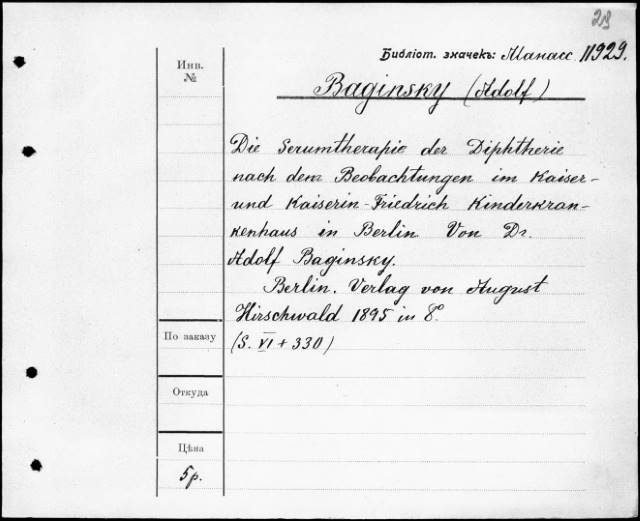 29
Библіот. значекъ: Манасс. 11929.
Инв.
№
Baginsky (Adolf)
Die Serumtherapie der Diphtherie
nach dem Beobachtungen im Kaiser-
und Kaiserin-Friedrich Kinderkran-
kenhaus in Berlin Von Dr.
Adolf Baginsky.
Berlin. Verlag von August
Hirschwald 1895 in 8°.
(S. VI + 330)
По заказу
Откуда
Цѣна
5р.